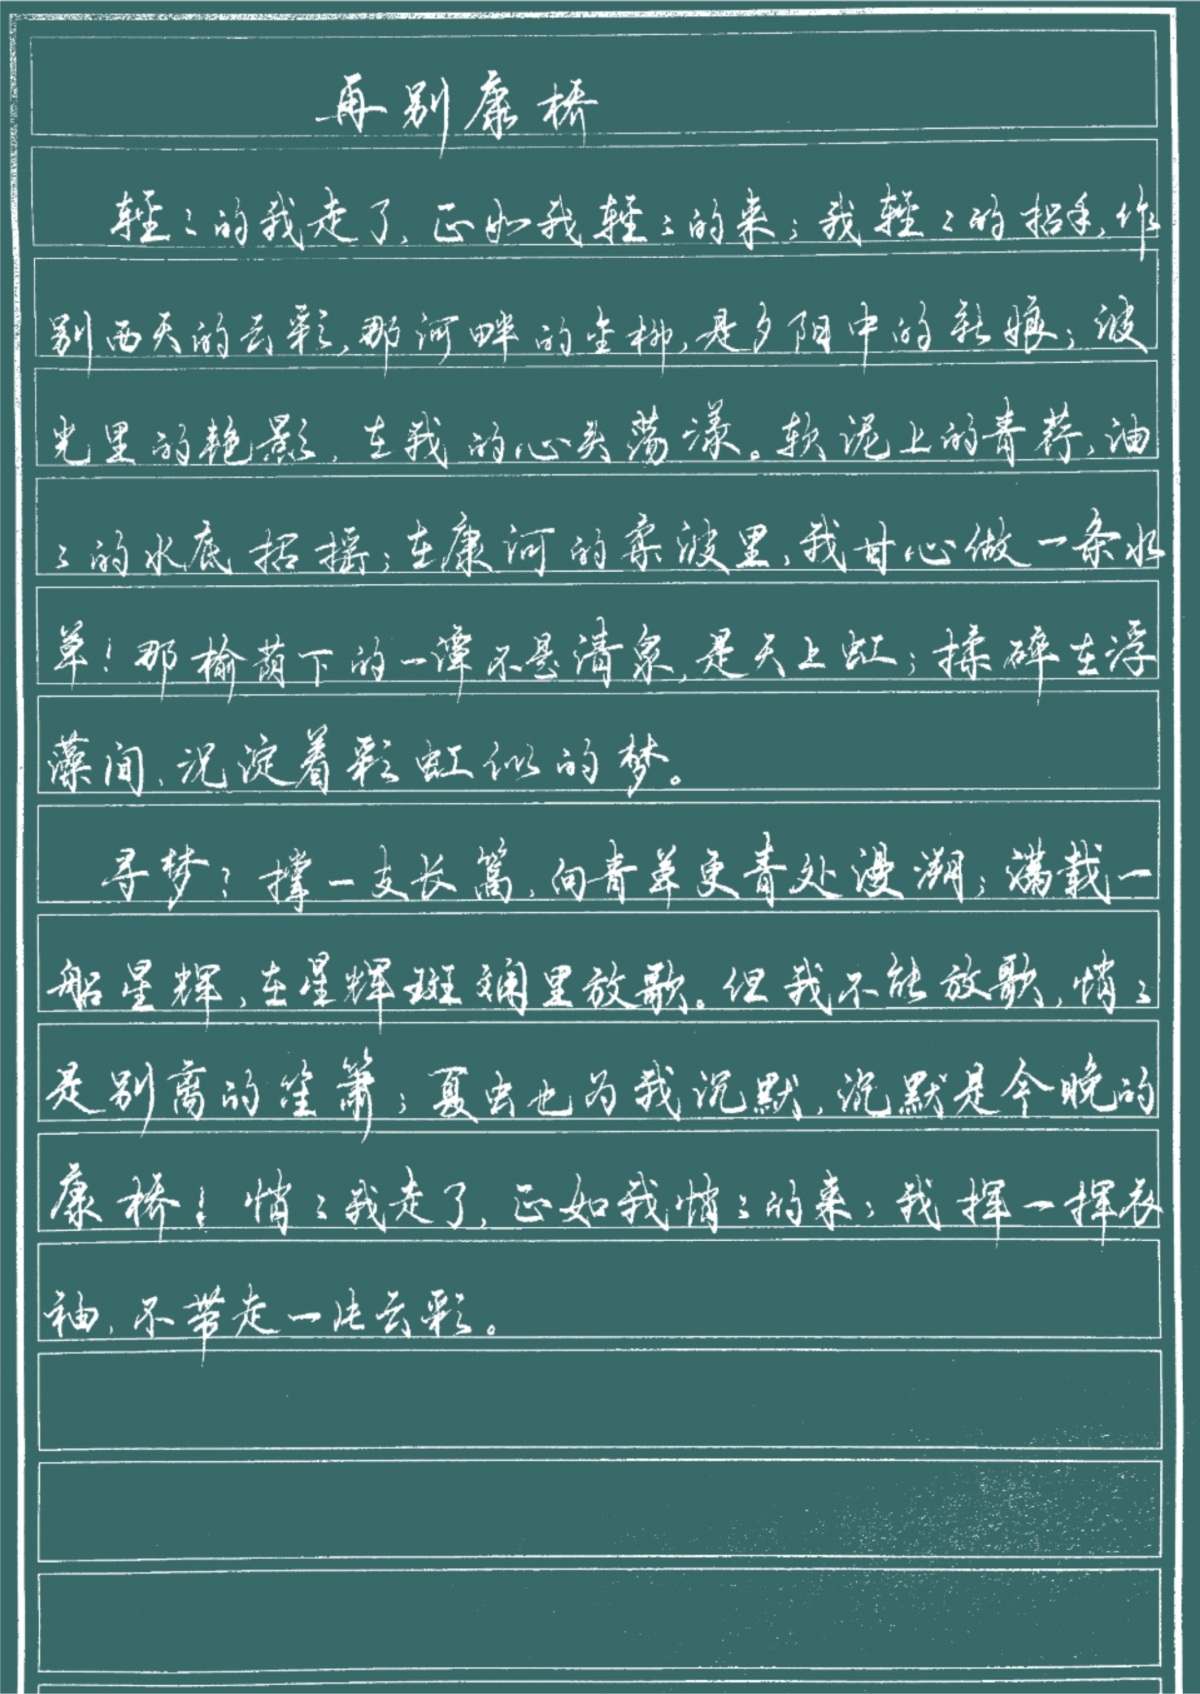 再别康桥
輕々的我走了,正如我輕々的来;我輕々的招手,作
别西天的云彩,那河畔的金柳,是夕阳中的新娘;波
光里的艳影,在我的心头荡漾。软泥上的青荇,油
々的水底招摇;在康河的柔波里,我甘心做一条水
草!那榆荫下的一潭不是清泉,是天上虹;揉碎在浮
藻间,沉淀着彩虹似的梦。
寻梦?撑一支长篙,向青草更青处漫溯;满载一
船星辉,在星辉斑斓里放歌。但我不能放歌,悄々
是别离的笙箫;夏虫也为我沉默,沉默是今晚的
康桥!悄々我走了,正如我悄々的来;我挥一挥衣
袖,不带走一片云彩。